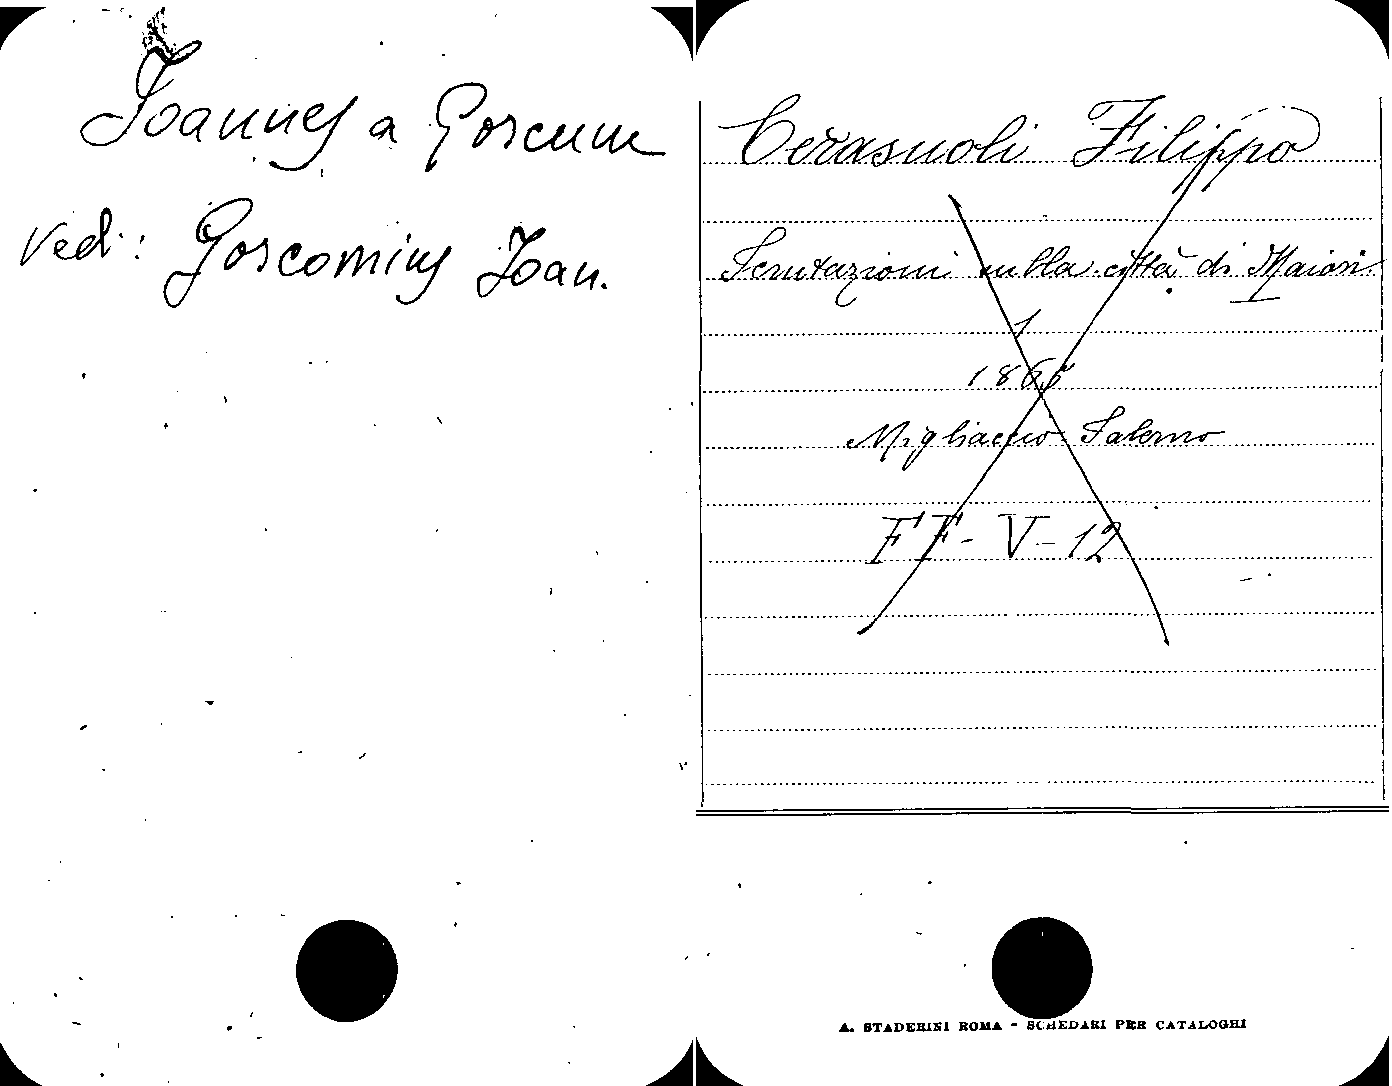 Joannes a Gorcum
vedi: Gorcomius Joan.
Cerasuoli Filippo
Scrutazioni sulla città di Maiori
1
1865
Migliaccio Salerno
FF - V - 12
A. STADERINI ROMA - SCHEDARI PER CATALOGHI